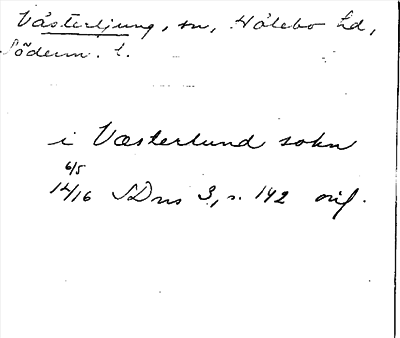 Västerljung, sn, Hölebo hd,
Söderm. l.
i Væsterlund sokn
6/5
14/16 SDns 3, s. 142 orig.